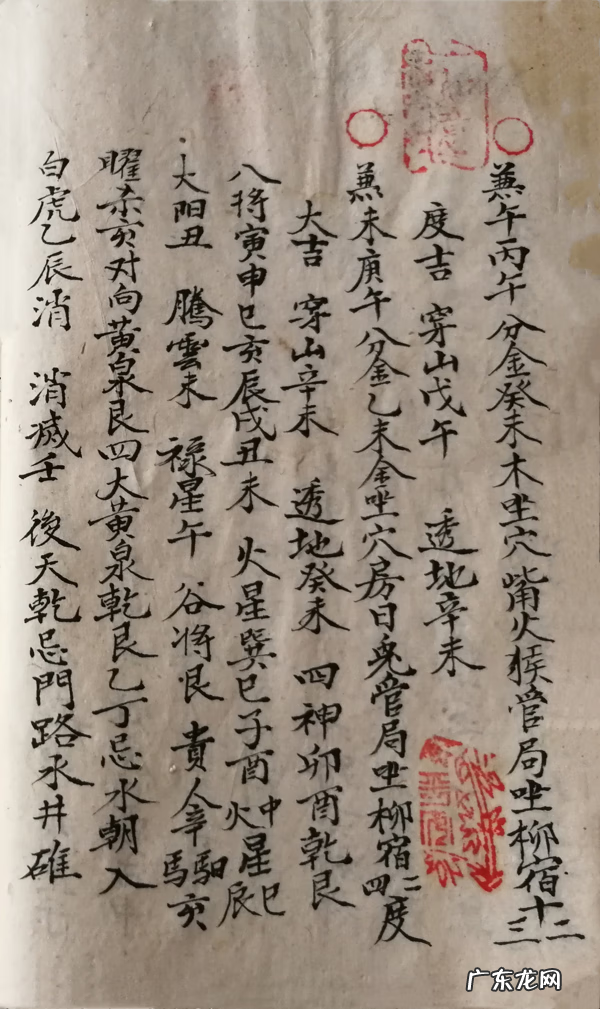 兼午丙午分金癸未木坐穴觜火猴管局坐柳宿十二三
度吉 穿山戊午 透地辛未
兼未庚午分金乙未金坐穴房日兔管局坐柳宿二四度
大吉 穿山辛未 透地癸未 四神卯酉乾艮
八将寅申巳亥辰戌丑未 火星巽巳子酉中火星巳辰
太阳丑 騰雲未 禄星午 谷将艮 貴人 馬亥
曜 亥对向黄泉艮四大黄泉乾艮乙丁忌水朝入
白虎乙辰消 消滅壬 後天乾忌門路水井碓
广东龙网
WWW.GDL.COM